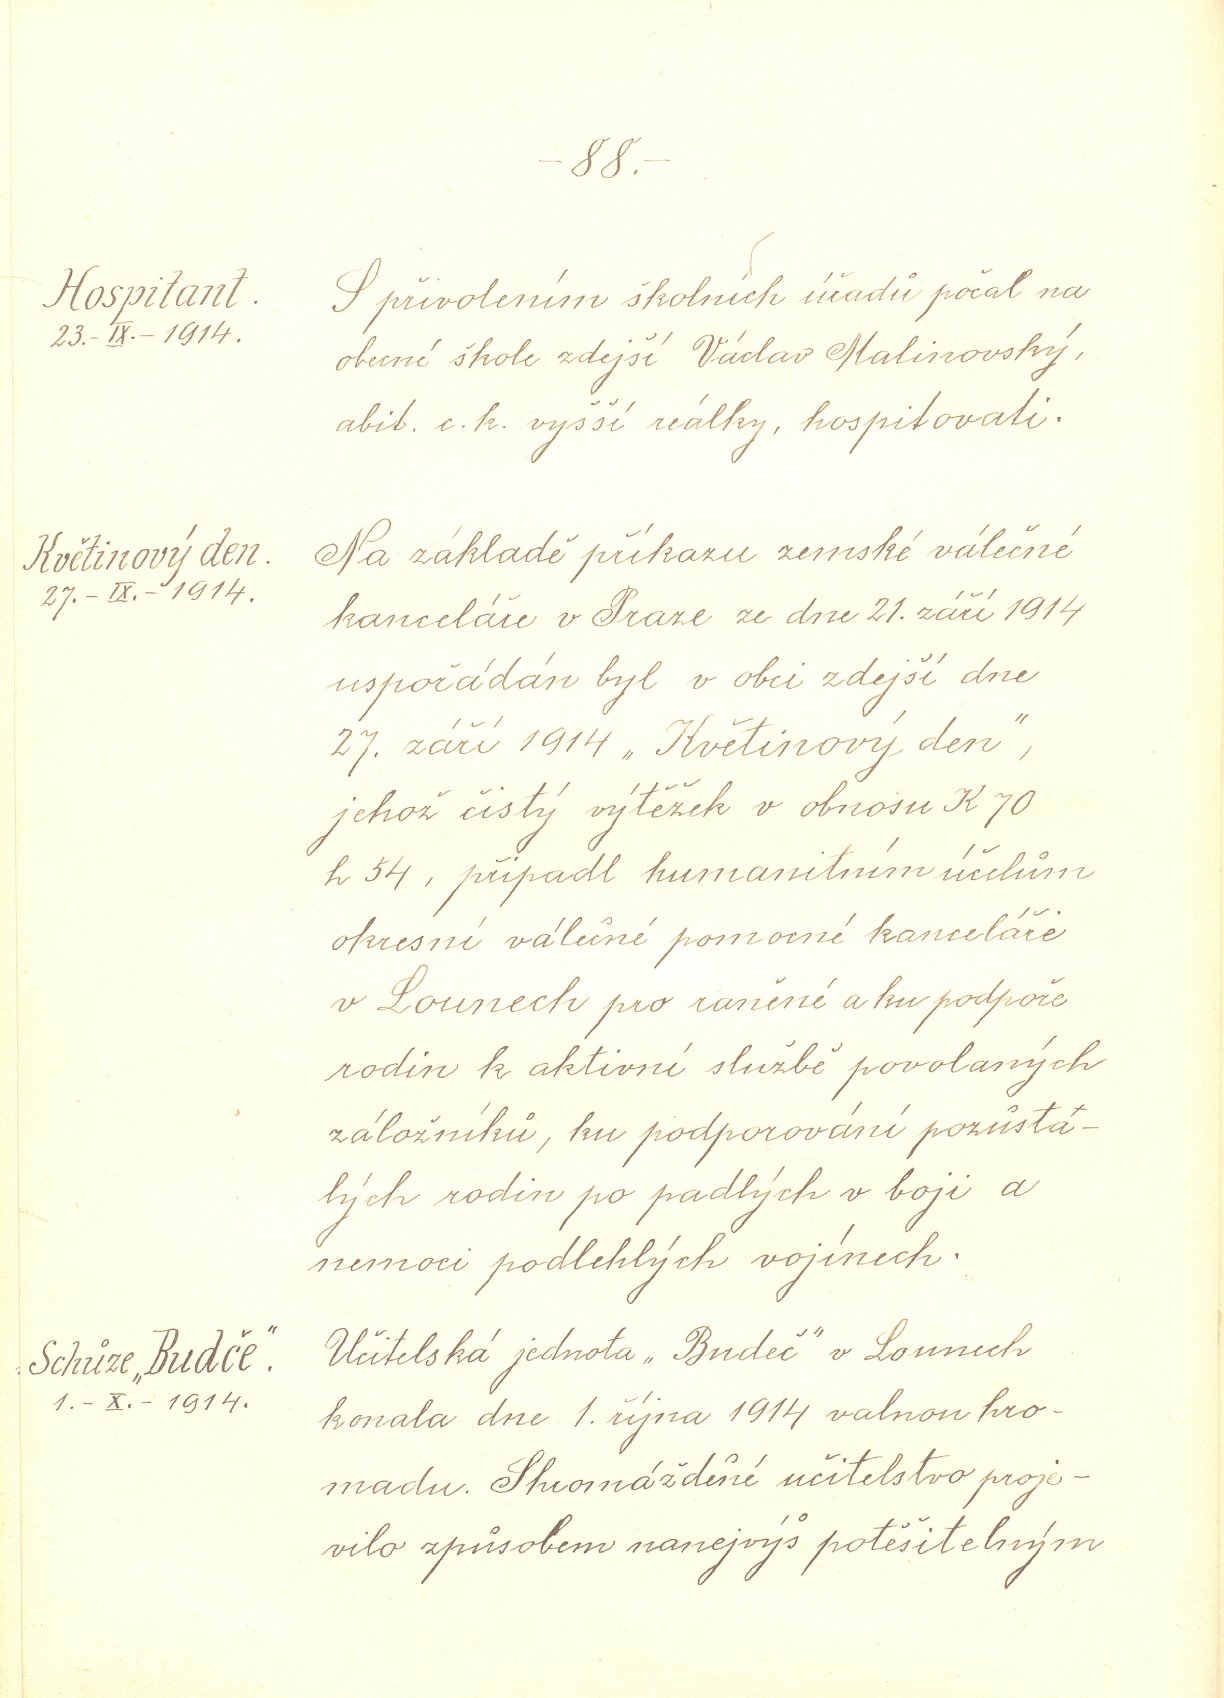 – 88. –
Hospitant.
23.- IX. - 1914.
S přivolením školních úřadů počal na
obecné škole zdejší Václav Malinovský,
abit. c. k. vyšší reálky, hospitovati.
Květinový den.
27. - IX. - 1914.
Na základě příkazu zemské válečné
kanceláře v Praze ze dne 21. září 1914
uspořádán byl v obci zdejší dne
27. září 1914 „Květinový den",
jehož čistý výtěžek v obnosu K 70
h 54, připadl humanitním účelům
okresní válečné pomocné kanceláře
v Lounech pro raněné a ku podpoře
rodin k aktivní službě povolaných
záložníků, ku podporování pozůsta-
lých rodin po padlých v boji a
nemoci podlehlých vojínech.
Schůze „Budče".
1. - X. - 1914.
Učitelská jednota „Budeč" v Lounech
konala dne 1. října 1914 valnou hro-
madu. Shromážděné učitelstvo proje-
vilo způsobem nanejvýš potěšitelným